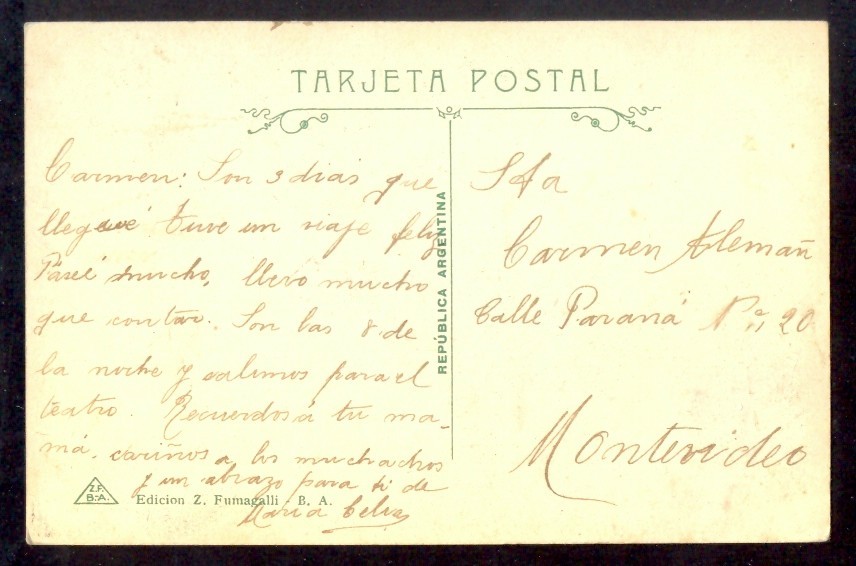 TARJETA POSTAL
Carmen: Son 3 dias que
llegué tuve un viaje feliz
Paseé mucho, llevo mucho
que contar. Son las 8 de
la noche y salimos para el
teatro. Recuerdos á tu ma-
má, cariños a los muchachos
y un abrazo para ti de
Maria
Z.F.
B.-A.
Edicion Z. Fumagalli B. A.
REPÚBLICA ARGENTINA
Sta
Carmen Alemañ
Calle Paraná Nº 20
Montevideo